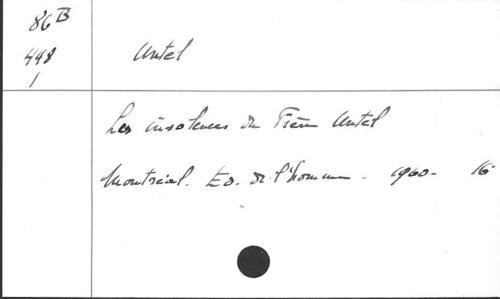 86 B
448
1
Untel
Les insolences du Frère Untel
Montréal. Ed. de l'homme - 1960 - 16